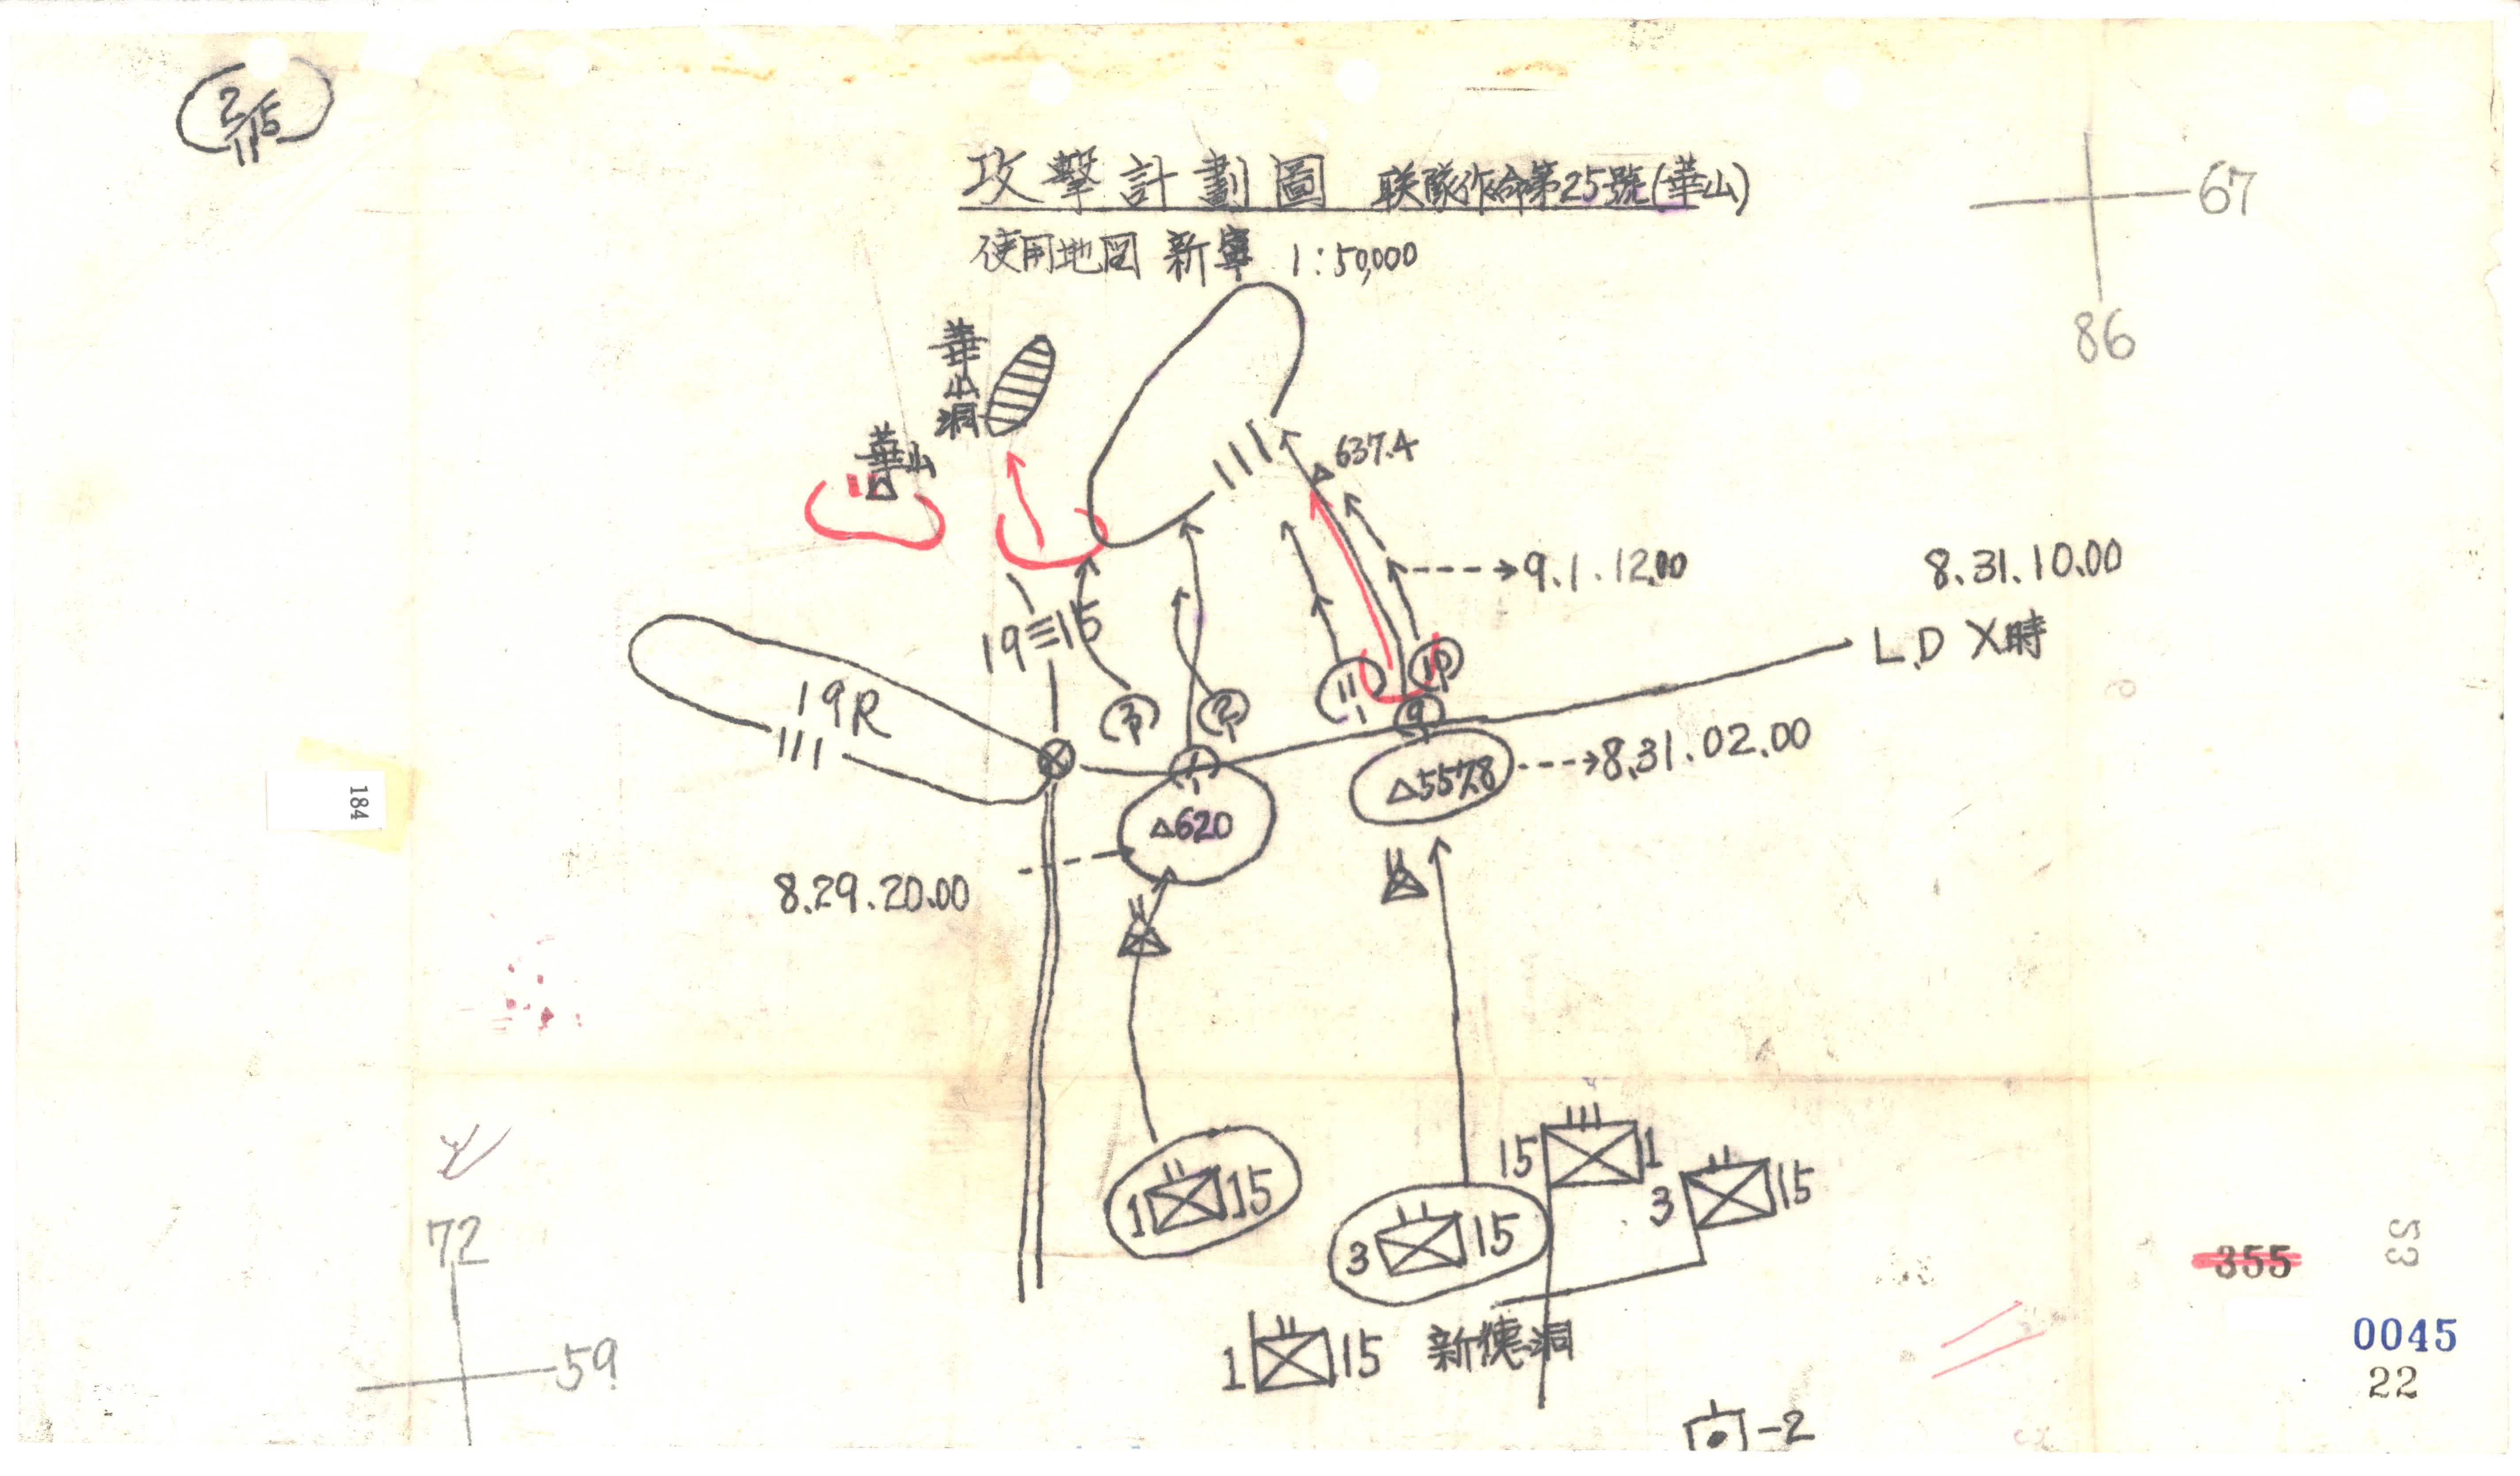 2/15
攻擊計劃圖 联隊作命第25號(華山)
使用地図 新寧 1:50,000
67
86
華山洞
華山
637.4
9.1.12.00
8.31.10.00
L.D X時
19 15
19R
3
2
11
10
9
1
557.8
8.31.02.00
620
8.29.20.00
184
1 15
3 15
15 1
3 15
1 15
新德洞
-2
72
59
355
53
0045
22